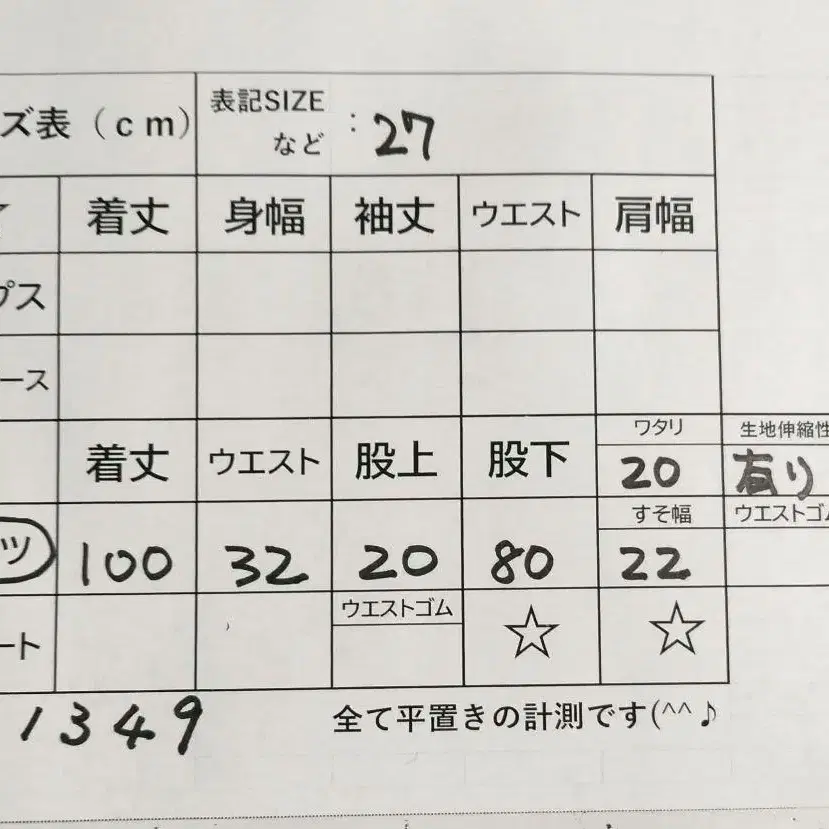 ズ表（cm） 表記SIZE など : 27
着丈 身幅 袖丈 ウエスト 肩幅
プス
ース
着丈 ウエスト 股上 股下 ワタリ 20 生地伸縮性 有り
ツ 100 32 20 80 すそ幅 22 ウエストゴム
ート ウエストゴム ☆ ☆
1349 全て平置きの計測です(^^♪